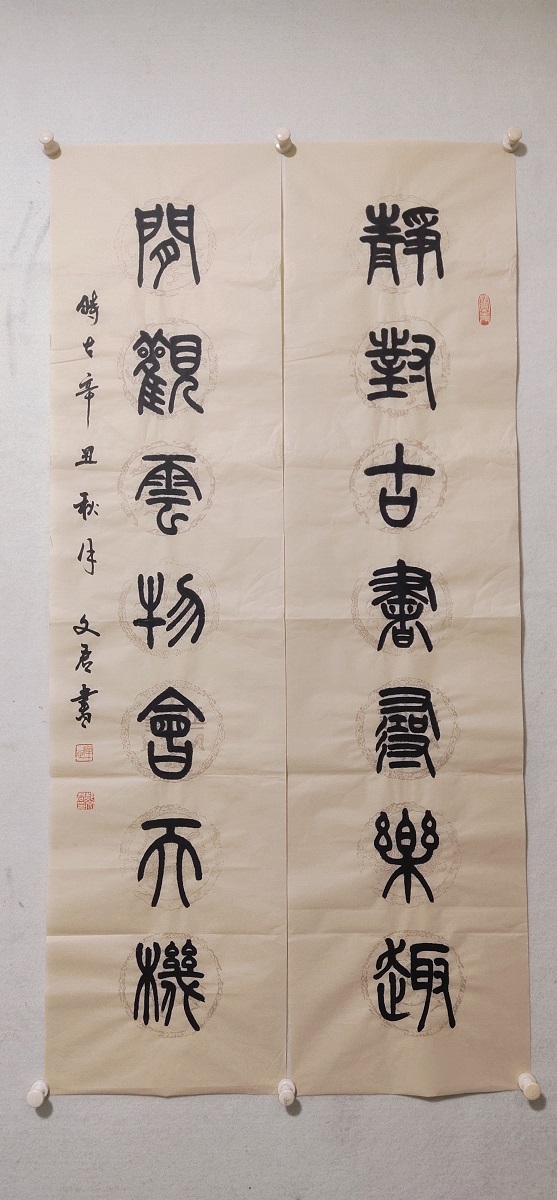 靜對古書尋樂趣
閒觀雲物會天機
時在辛丑秋月 文君書